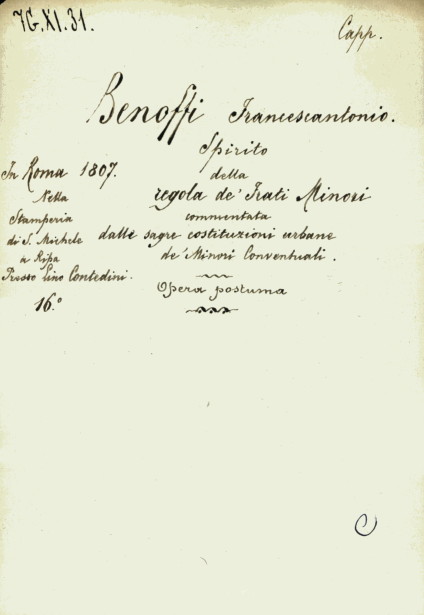 7G.XI.31.
Capp.
Benoffi Francescantonio.
Spirito
della
regola de' Frati Minori
commentata
dalle sagre costituzioni urbane
de' Minori Conventuali.
Opera postuma
In Roma 1807.
Nella
Stamperia
di S. Michele
a Ripa
Presso Lino Contedini.
16.°